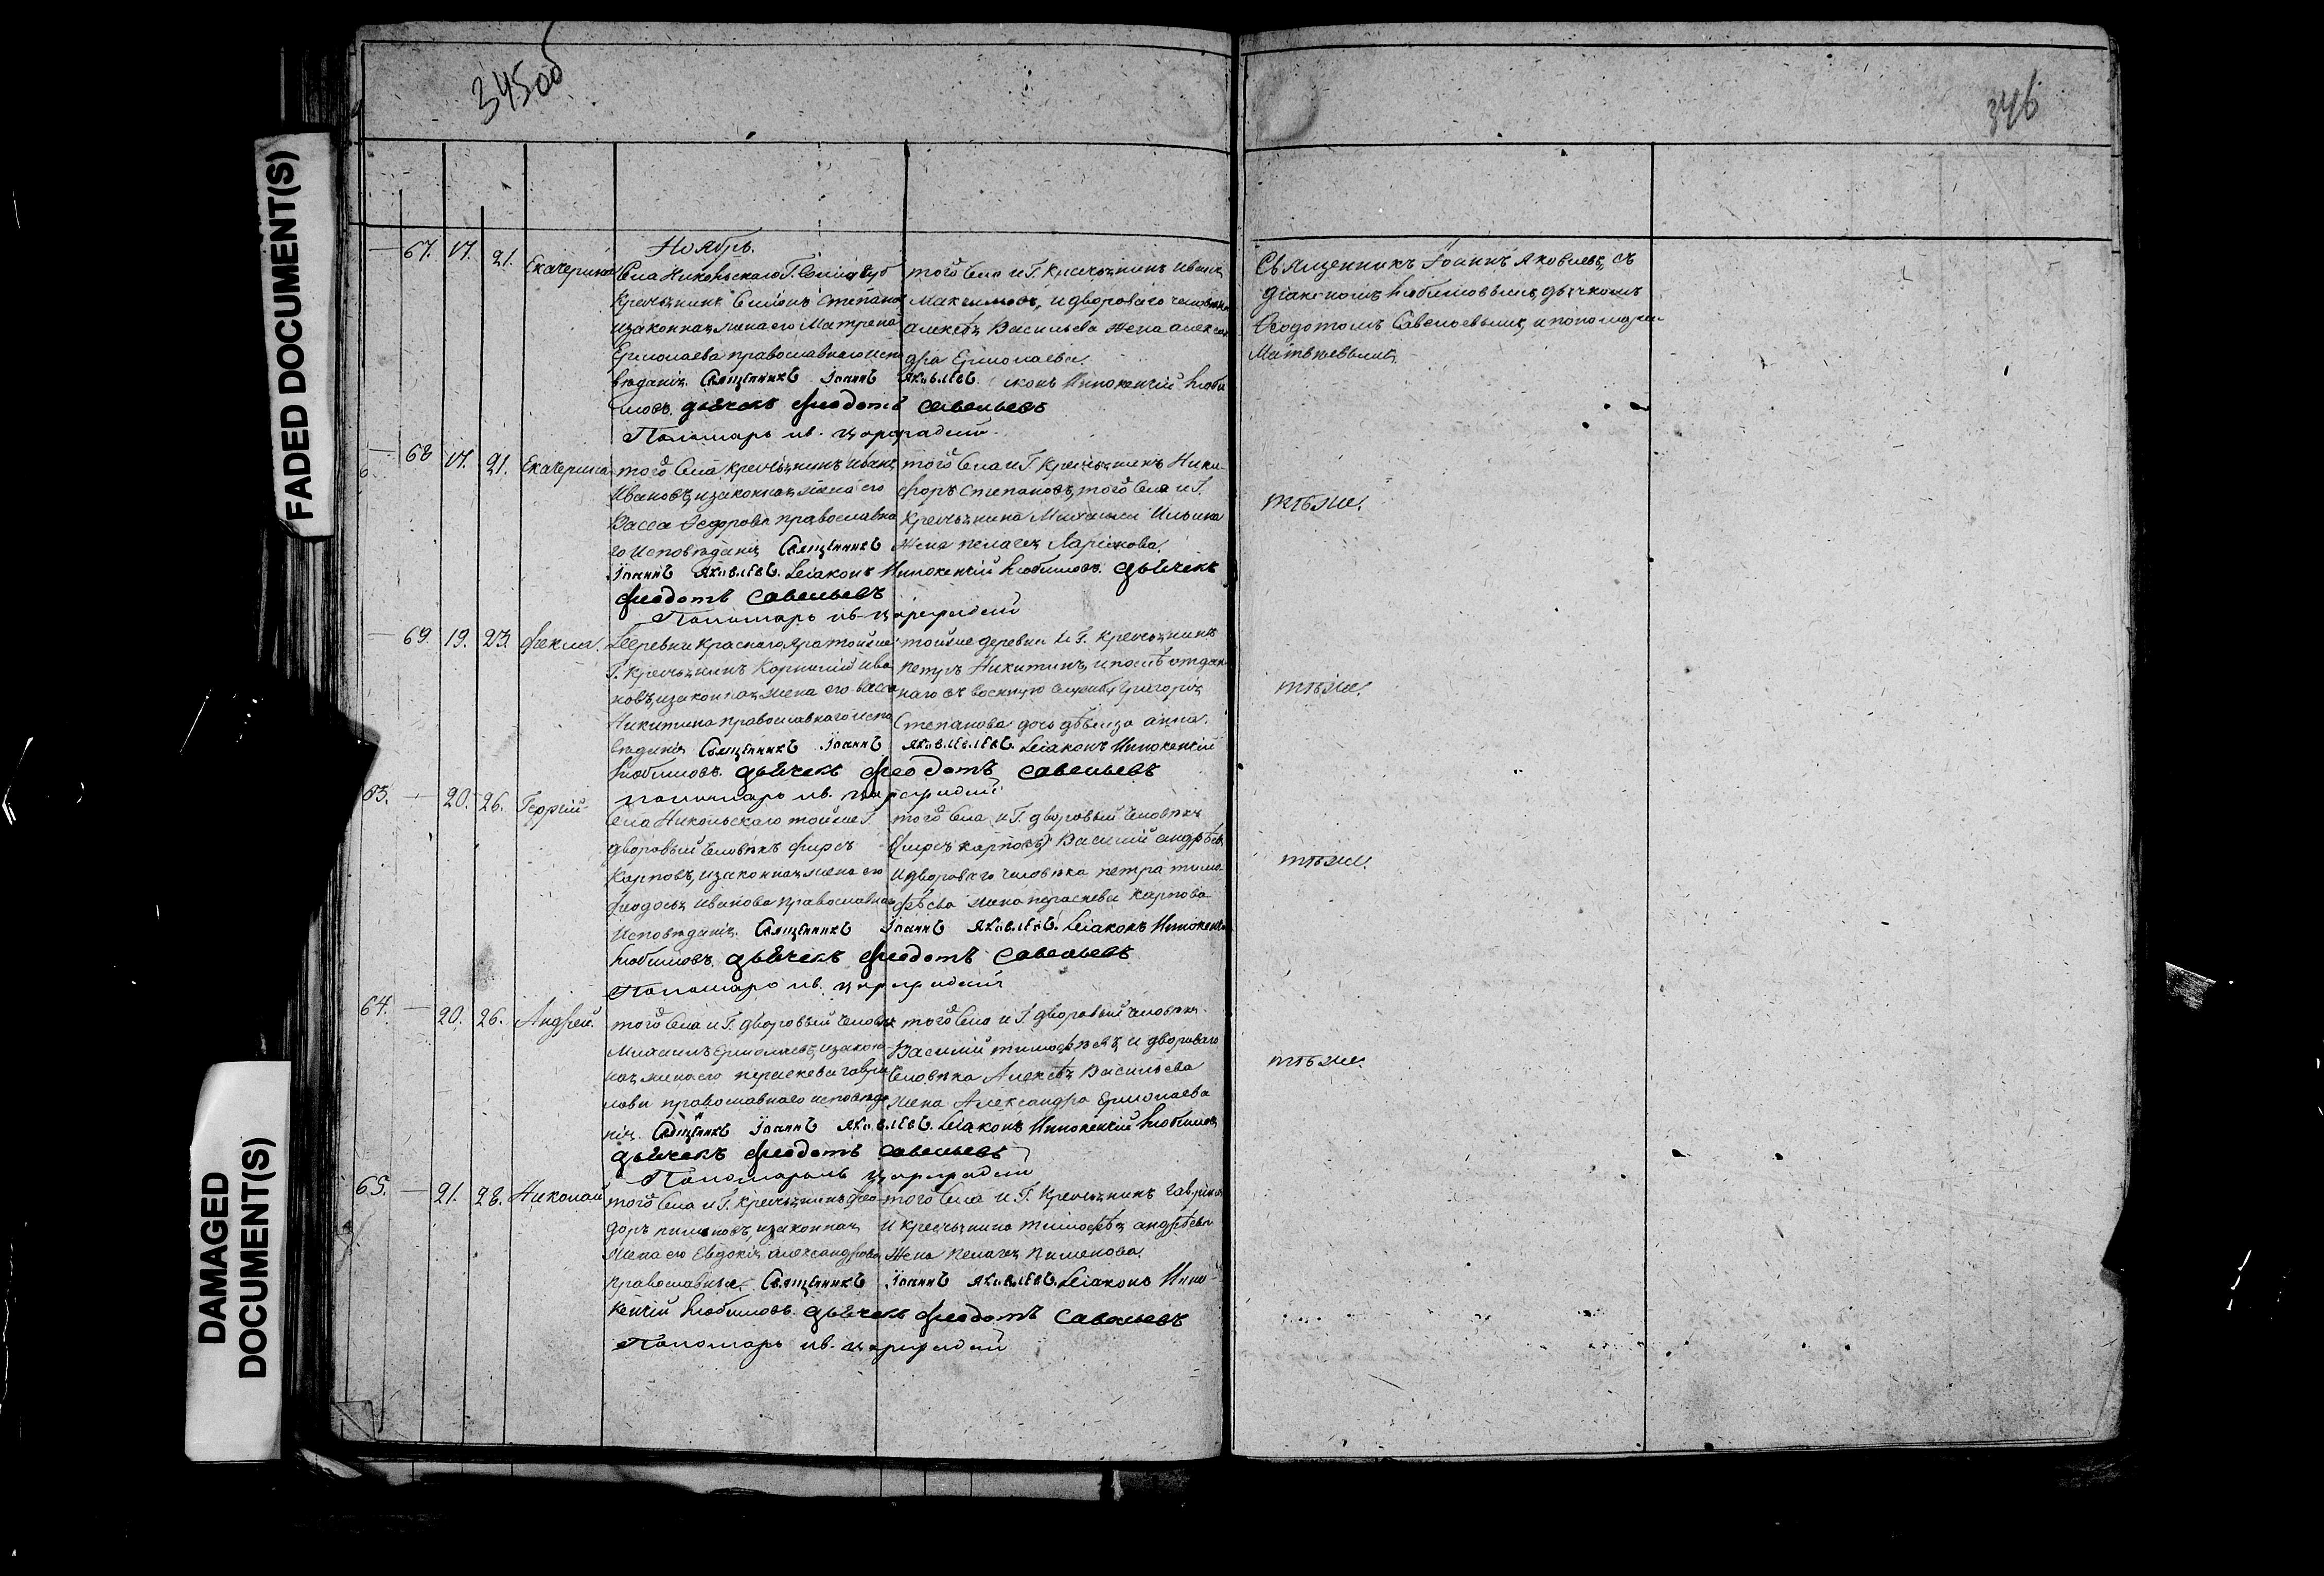 345об
346
FADED DOCUMENT(S)
DAMAGED
DOCUMENT(S)
Ноябрь.
67. 17. 21. Екатерина
Села Никольскаго Г.
крестьянинъ Симіонъ Степановъ
изаконная жена его Матрена
Ермолаева православнаго испо
вѣданія. Священникъ Іоаннъ Яковлевъ. Иннокентій Люби
мовъ. дьячекъ Феодотъ Савельевъ
Пономарь ив. Цареградскій
того Села и Г. крестьянинъ Иванъ
Максимовъ, и двороваго человѣка
алексѣя Васильева жена алексан
дра Ермолаева
Священникъ Іоаннъ Яковлевъ, съ
діакономъ Любимовымъ, дьячкомъ
Феодотомъ Савельевымъ, и пономаремъ
Матвѣевымъ
68 17. 21. Екатерина
того Села крестьянинъ Иванъ
Ивановъ, изаконная жена его
Васса Федорова православна
го Исповѣданія Священникъ
Іоаннъ Яковлевъ. Діаконъ Иннокентій Любимовъ. дьячекъ
Феодотъ Савельевъ
Пономарь ив. Цареградскій
того Села и Г. крестьянинъ Ники
форъ Степановъ, того Села и Г.
крестьянина Михаила Ильина
жена пелагея Ларіонова.
тѣже.
69. 19. 23. Фекла.
Деревни Краснаго Яра тойже
Г. крестьянинъ Корнилій Ива
новъ, изаконная жена его васса
Никитина православнаго испо
вѣданія Священникъ Іоаннъ Яковлевъ. Діаконъ Иннокентій
Любимовъ. дьячекъ Феодотъ Савельевъ
пономарь ив. Цареградскій
тойже деревни и Г. крестьянинъ
петръ Никитинъ, и отдан
наго въ военную службу Григорія
Степанова дочь дѣвица анна.
тѣже.
63. 20. 26. Георгій
Села Никольскаго тойже Г.
дворовый Человѣкъ Фирсъ
Карповъ, изаконная жена его
Феодосья Иванова православнаго
Исповѣданія. Священникъ Іоаннъ Яковлевъ. Діаконъ Иннокентій
Любимовъ. дьячекъ Феодотъ Савельевъ
Пономарь ив. Цареградскій
того Села и Г. дворовый Человѣкъ
(Фирсъ Карповъ) Василій андрѣевъ
и двороваго человѣка петра тимо
фѣева жена параскева Карпова
тѣже.
64. 20. 26. Андрей.
того Села и Г. дворовый Человѣкъ
Михаилъ Ермолаевъ, изакон
ная жена его параскева гаври
лова православнаго исповѣда
нія. Священникъ Іоаннъ Яковлевъ. Діаконъ Иннокентій Любимовъ
дьячекъ Феодотъ Савельевъ
Пономарь ив Цареградскій
того Села и Г. дворовый Человѣкъ
Василій тимофѣевъ, и двороваго
Человѣка Алексѣя Васильева
жена Александра Ермолаева
тѣже.
65. 21. 28. Николай
того Села и Г. крестьянинъ Фео
доръ пименовъ, изаконная
жена его Евдокія александрова
православные. Священникъ Іоаннъ Яковлевъ. Діаконъ Инно
кентій Любимовъ. дьячекъ Феодотъ Савельевъ
Пономарь ив. Цареградскій
того Села и Г. крестьянинъ
и крестьянина тимофѣя андрѣева
жена пелагея пименова.